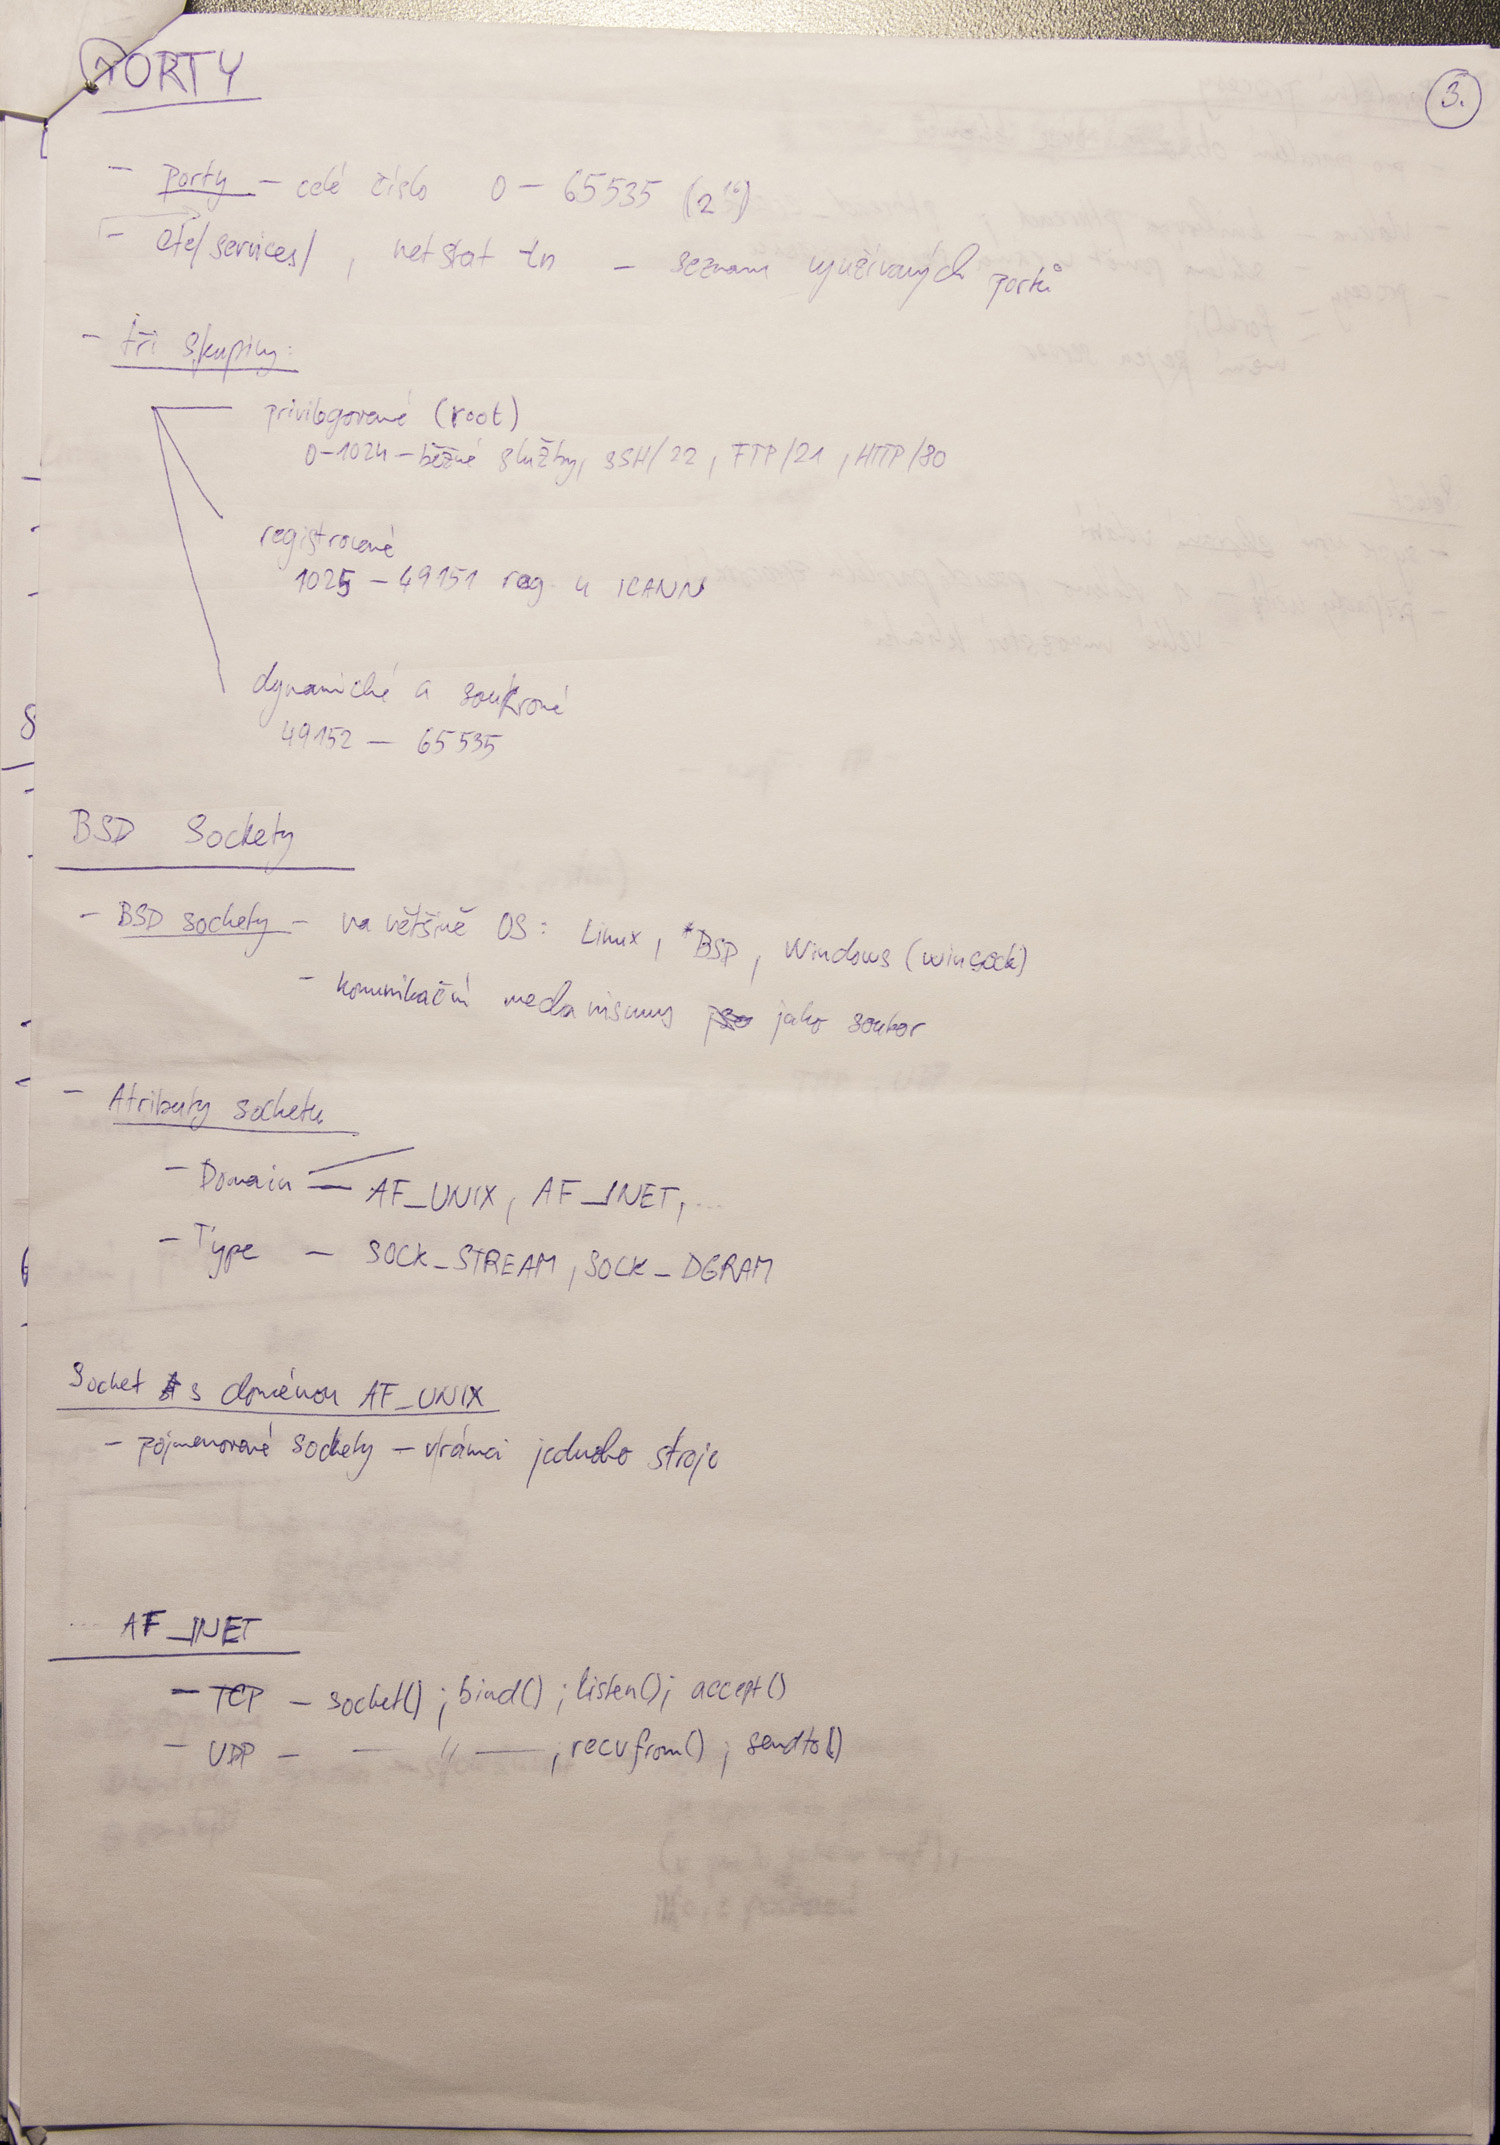 PORTY
3.
- porty - celé číslo 0 - 65535 (2^16)
- etc/services/, netstat tn - seznam využívaných portů
- tři skupiny:
privilogované (root)
0-1024 - běžné služby, SSH/22, FTP/21, HTTP/80
registrované
1025 - 49151 reg. u ICANN
dynamické a soukromé
49152 - 65535
BSD Sockety
- BSD sockety - na většině OS: Linux, *BSD, Windows (winsock)
- komunikační mechanismy jako soubor
- Atributy socketu
- Domain - AF_UNIX, AF_INET, ...
- Type - SOCK_STREAM, SOCK_DGRAM
Socket s doménou AF_UNIX
- pojmenované sockety - v rámci jednoho stroje
... AF_INET
- TCP - socket(); bind(); listen(); accept()
- UDP - — " —; recvfrom(); sendto()